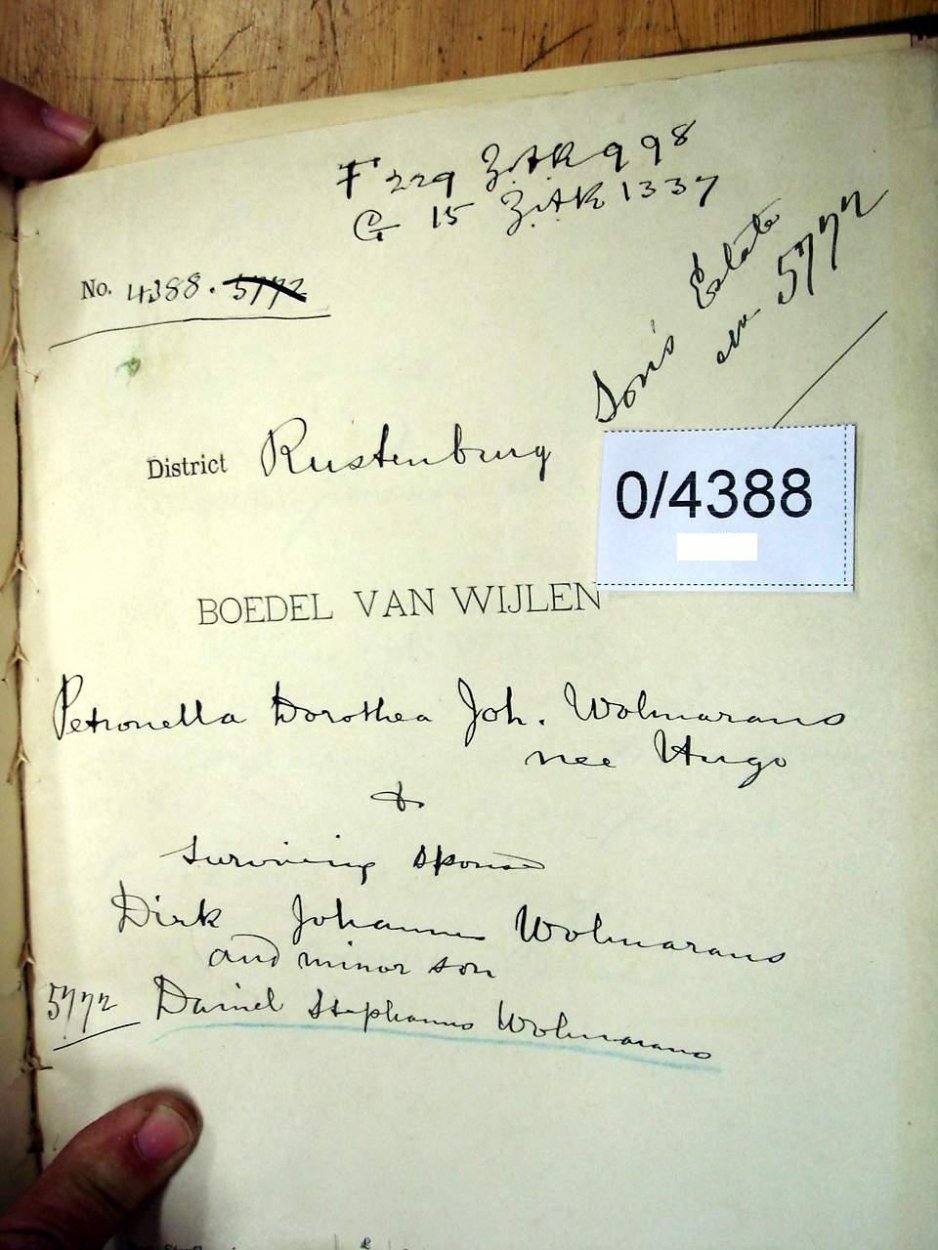 F 229 Z.A.R 998
G 15 Z.A.R 1337
No. 4388. 5772
Son's Estate
5772
District Rustenburg
0/4388
BOEDEL VAN WIJLEN
Petronella Dorothea Joh. Wolmarans
nee Hugo
&
Surviving spouse
Dirk Johannes Wolmarans
and minor son
5772 Daniel Stephanus Wolmarans